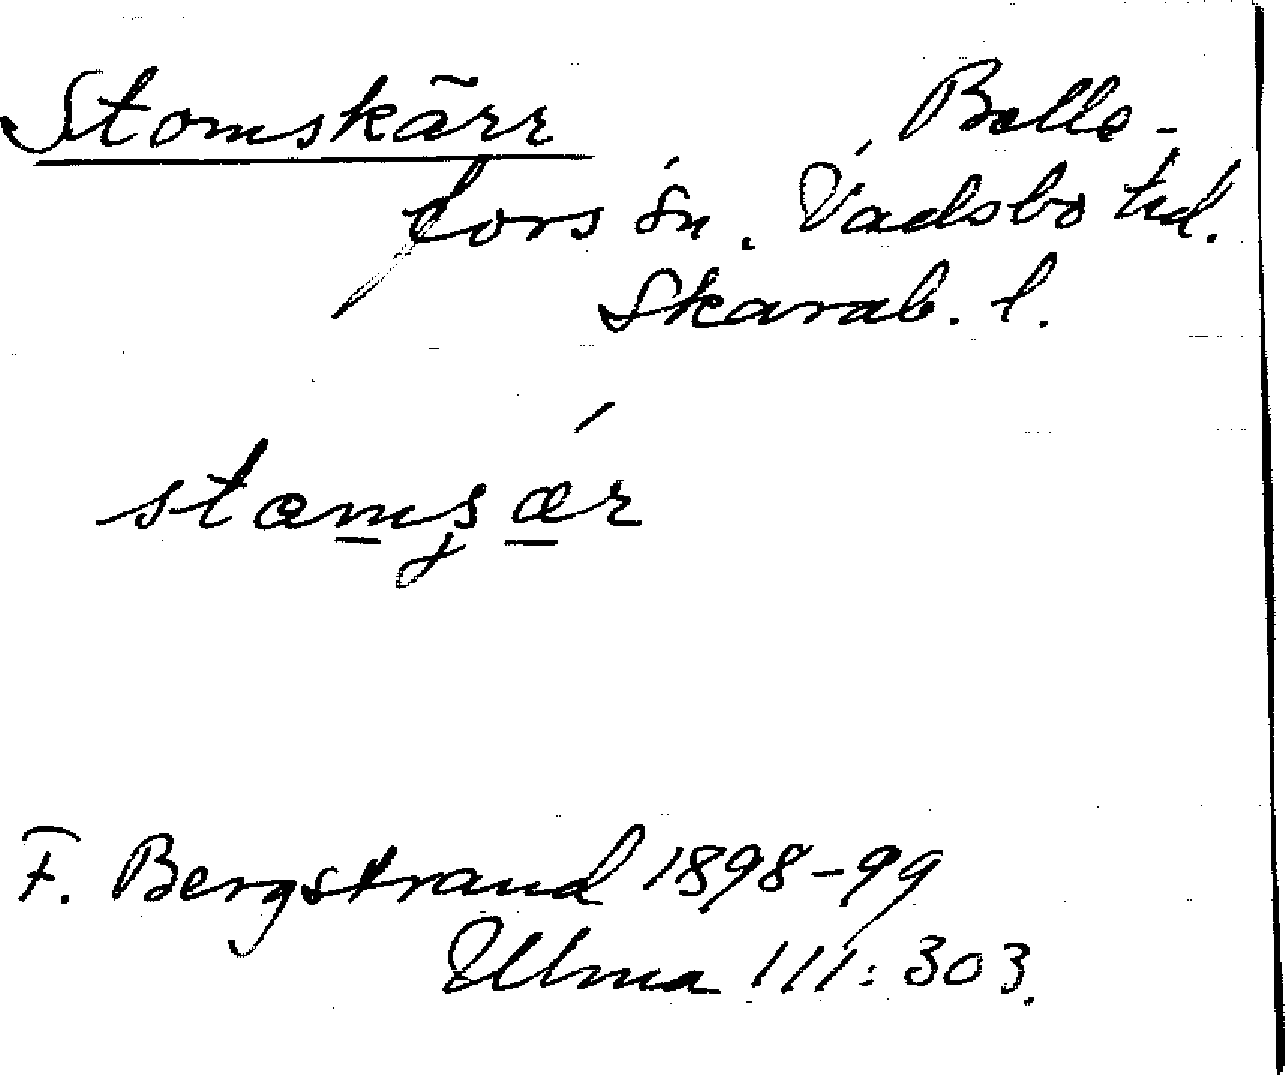 Stomskärr Belle-
fors sn. Vadsbo hd.
Skarab. l.
stæmsær
F. Bergstrand 1898-99
Ulma 111:303.